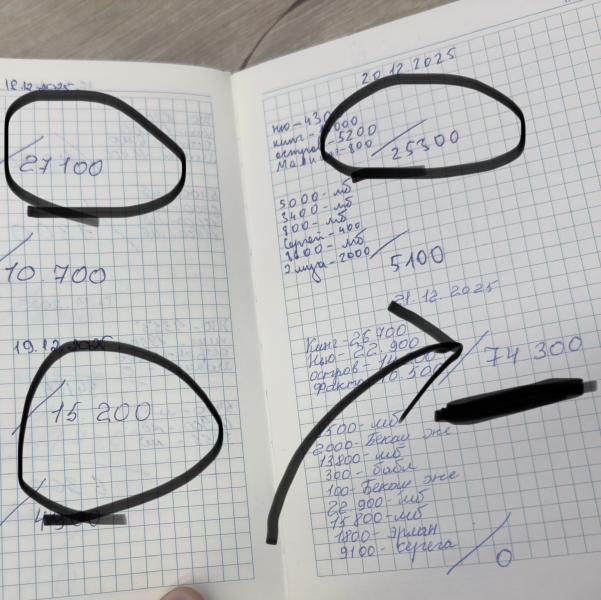 18.12.2025
27100
10.700
19.12.2025
15 200
20.12.2025
ню - 430
кинг - 000
остров - 5200
- 800
25300
5000 - мб
3400 - мб
800 - мб
Сергей - 400
- мб
2 муза - 2000
5100
21.12.2025
Кинг - 26700
Ню - 22.900
остров -
факто
74 300
500 - мб
2000 - Бекам эже
13800 - мб
300 - бабл
100 - Бекам эже
22 900 - мб
15 800 - мб
1800 - Эрлан
9100 - Серега
0